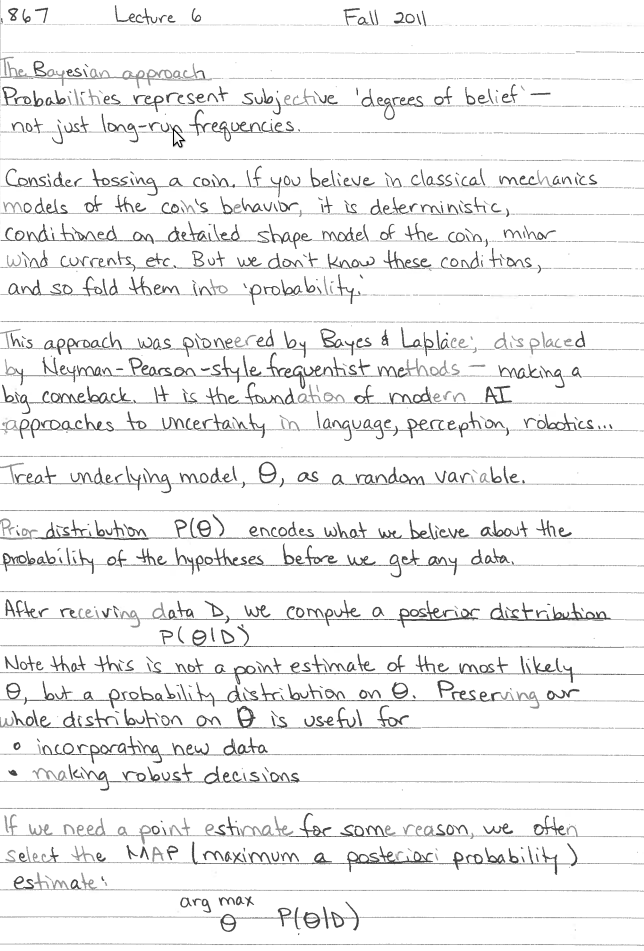 .867 Lecture 6 Fall 2011
The Bayesian approach
Probabilities represent subjective 'degrees of belief' —
not just long-run frequencies.
Consider tossing a coin. If you believe in classical mechanics
models of the coin's behavior, it is deterministic,
conditioned on detailed shape model of the coin, minor
wind currents, etc. But we don't know these conditions,
and so fold them into 'probability.'
This approach was pioneered by Bayes & Laplace; displaced
by Neyman-Pearson-style frequentist methods — making a
big comeback. It is the foundation of modern AI
approaches to uncertainty in language, perception, robotics...
Treat underlying model, Θ, as a random variable.
Prior distribution P(Θ) encodes what we believe about the
probability of the hypotheses before we get any data.
After receiving data D, we compute a posterior distribution
P(Θ|D)
Note that this is not a point estimate of the most likely
Θ, but a probability distribution on Θ. Preserving our
whole distribution on Θ is useful for
• incorporating new data
• making robust decisions
If we need a point estimate for some reason, we often
select the MAP (maximum a posteriori probability)
estimate:
arg max
Θ P(Θ|D)